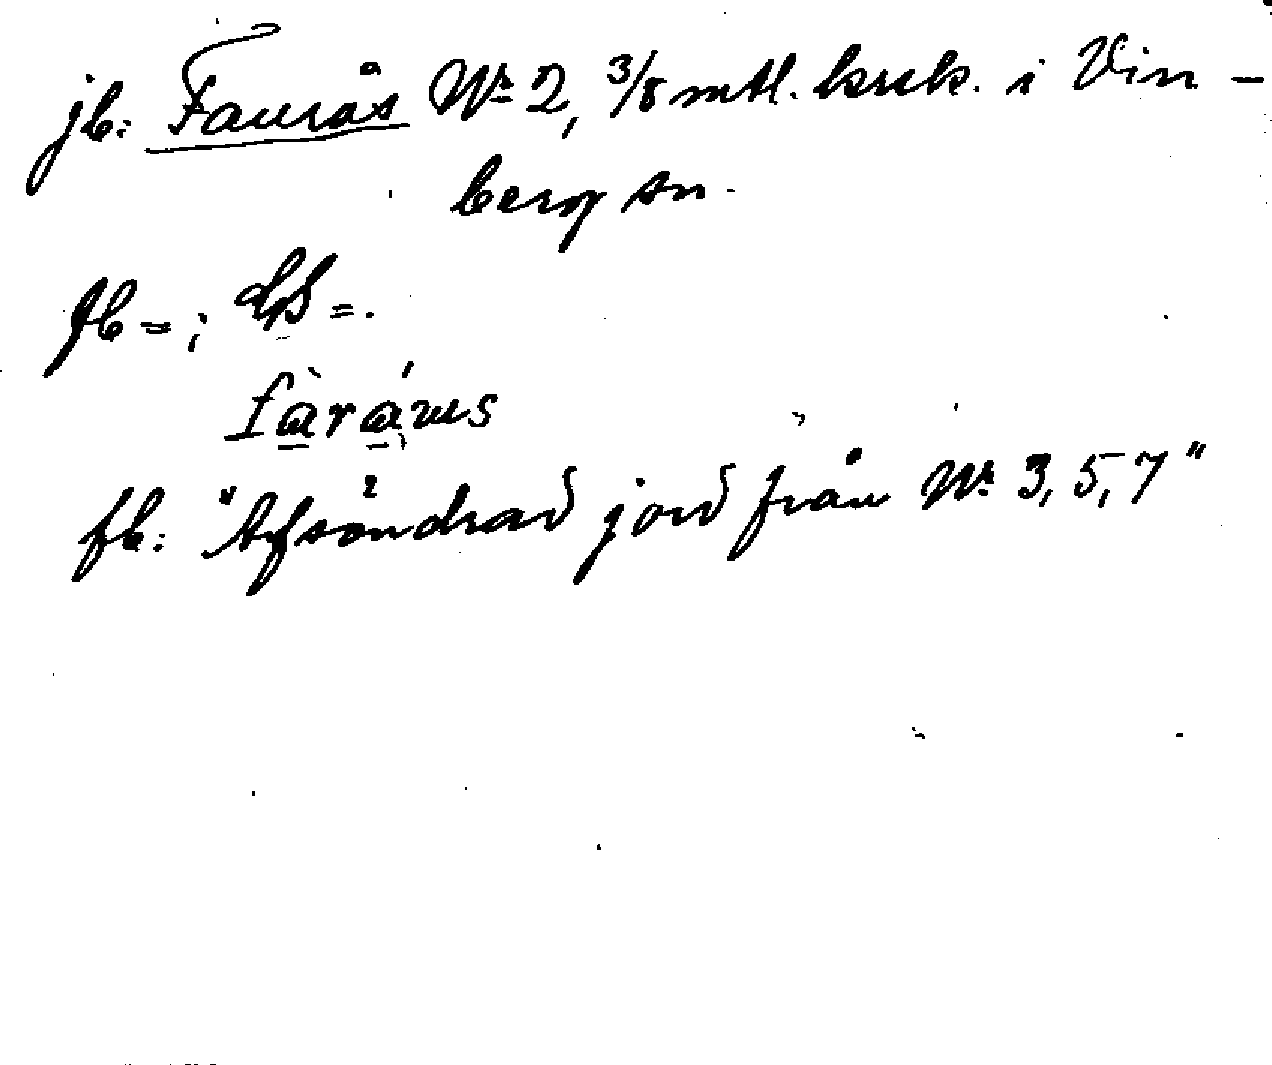 jb: Faurås Nr 2, 3/8 mtl. krsk. i Vin-
berg sn.
fb = ; GS =.
fb: "Afsöndrad jord från Nr 3, 5, 7"